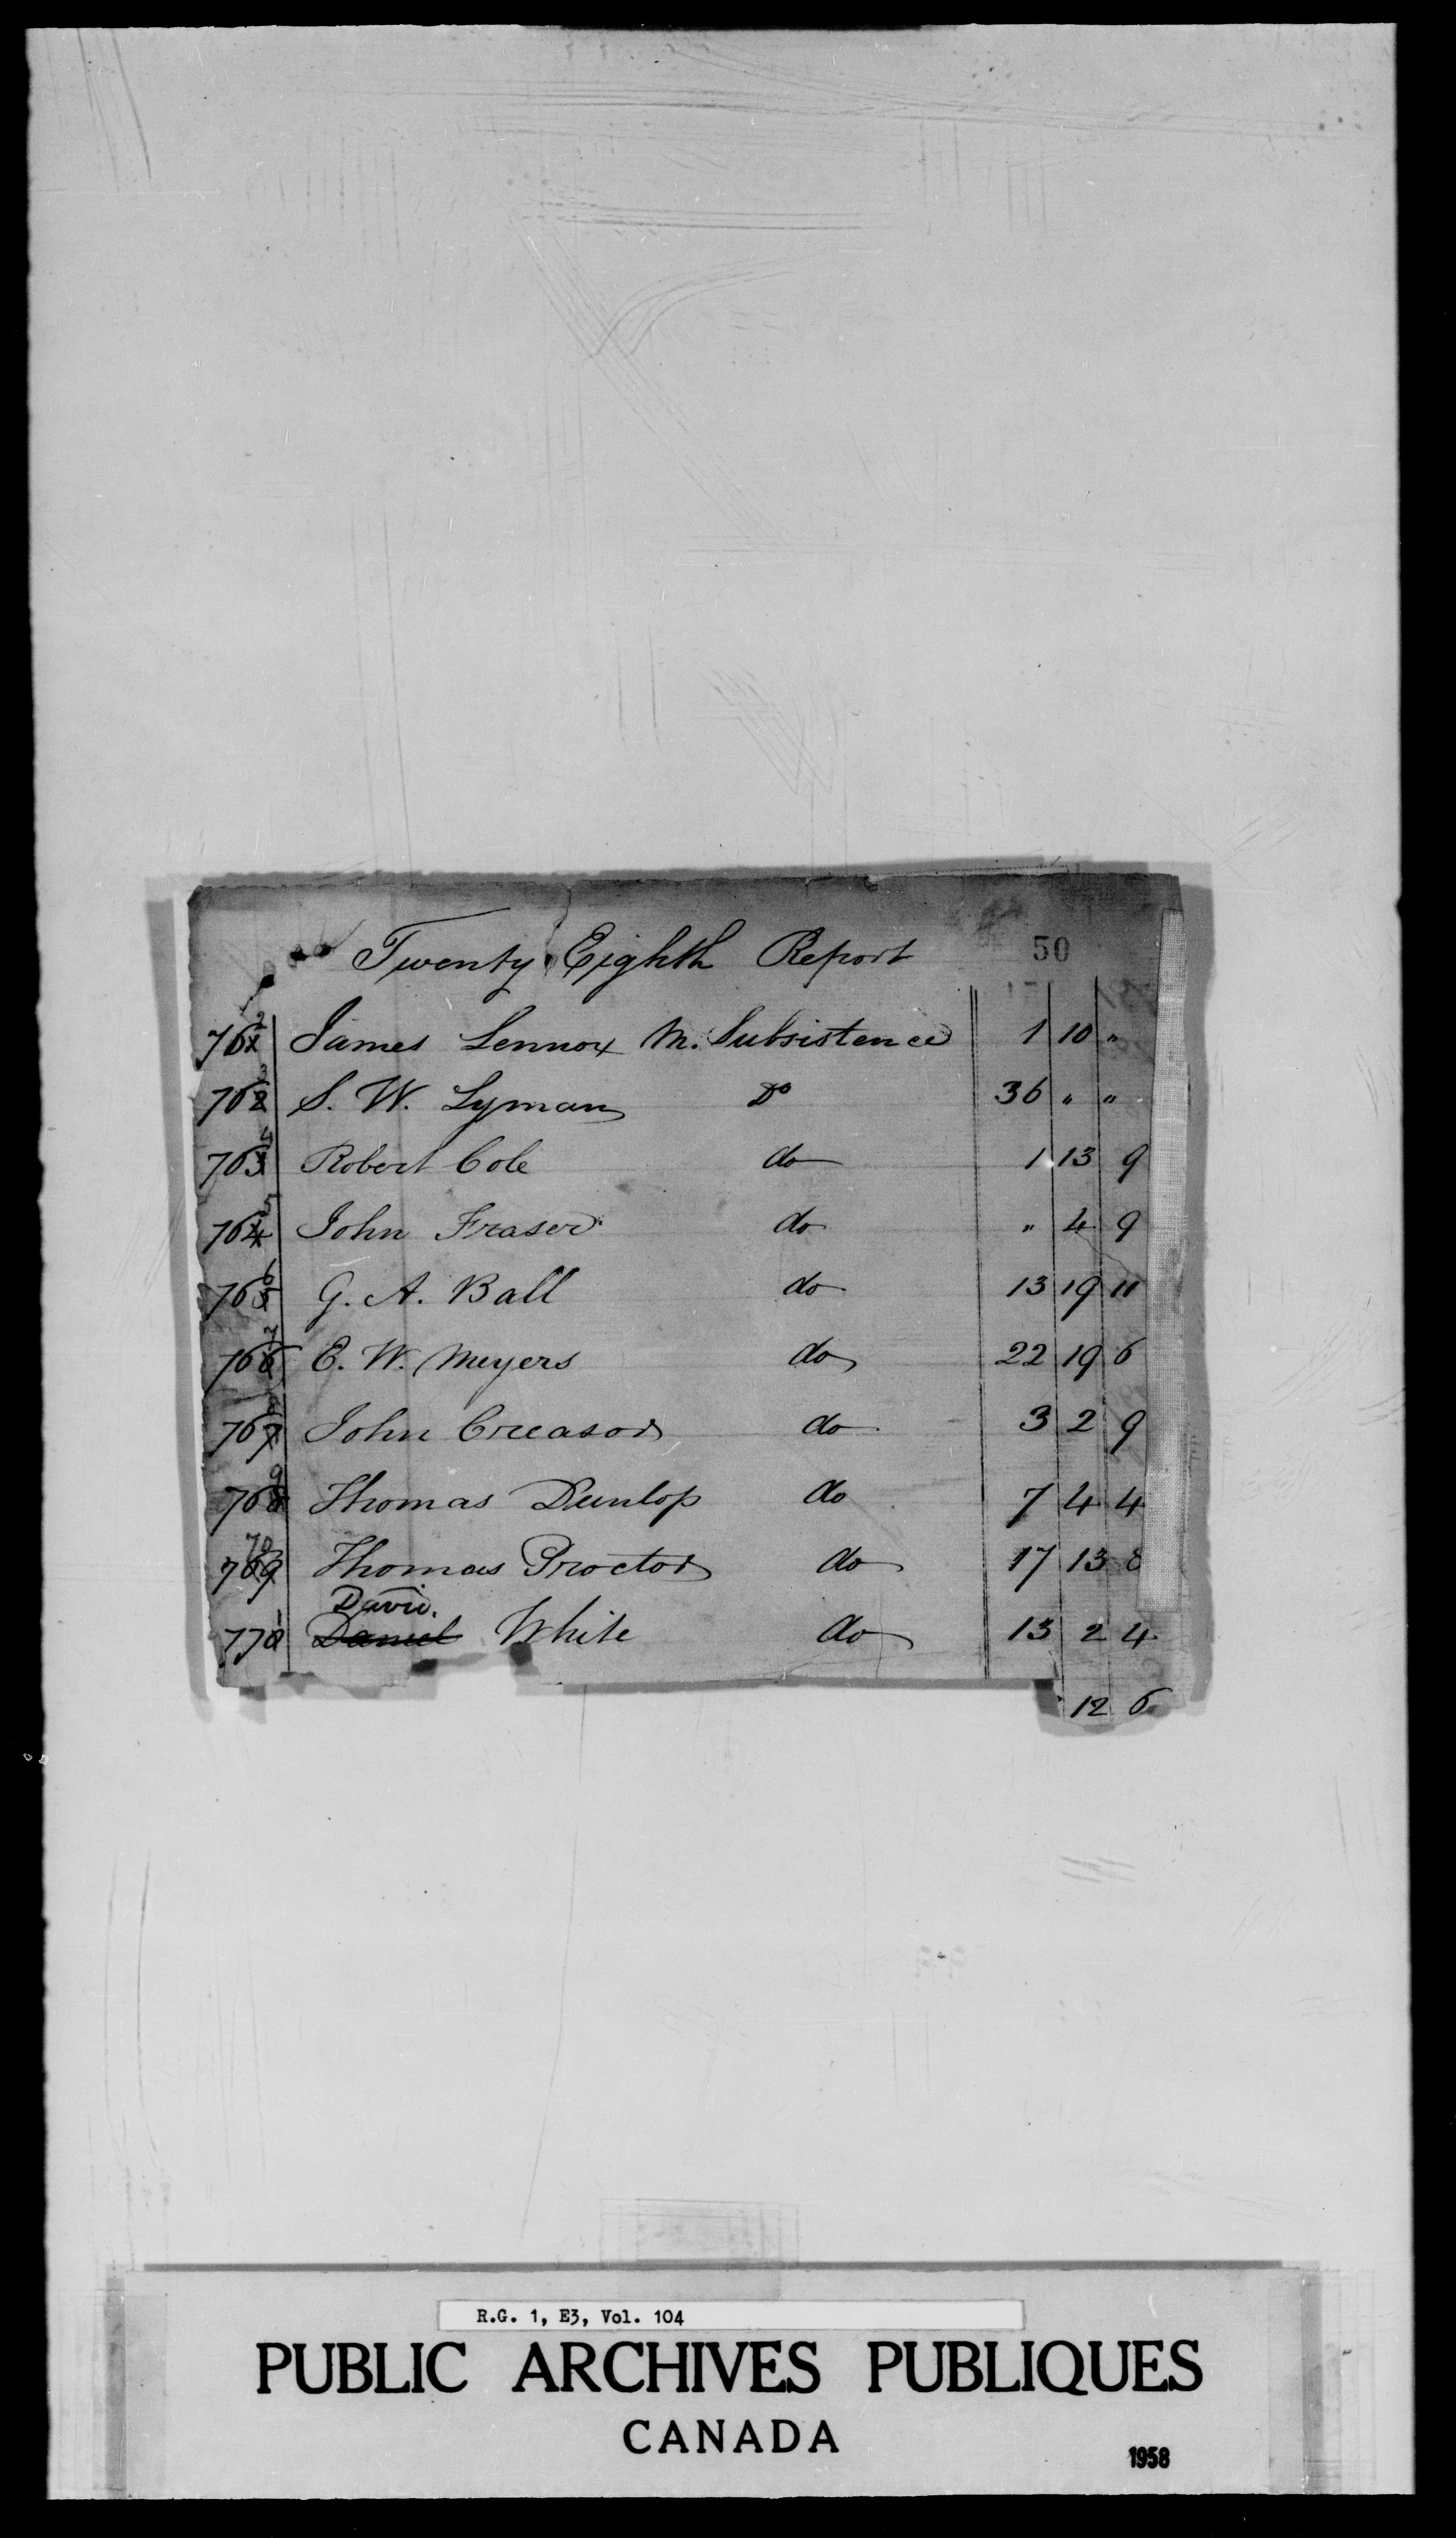 Twenty Eighth Report
50
762 James Lennox M. Subsistence 1 10 "
763 S. W. Lyman Do 36 " "
764 Robert Cole do 1 13 9
765 John Fraser do " 4 9
766 G. A. Ball do 13 19 11
767 E. W. Meyers do 22 19 6
768 John Creasor do 3 2 9
769 Thomas Dunlop do 7 4 4
770 Thomas Proctor do 17 13 8
David
771 Daniel White do 13 2 4
12 6
R.G. 1, E3, Vol. 104
PUBLIC ARCHIVES PUBLIQUES
CANADA
1958